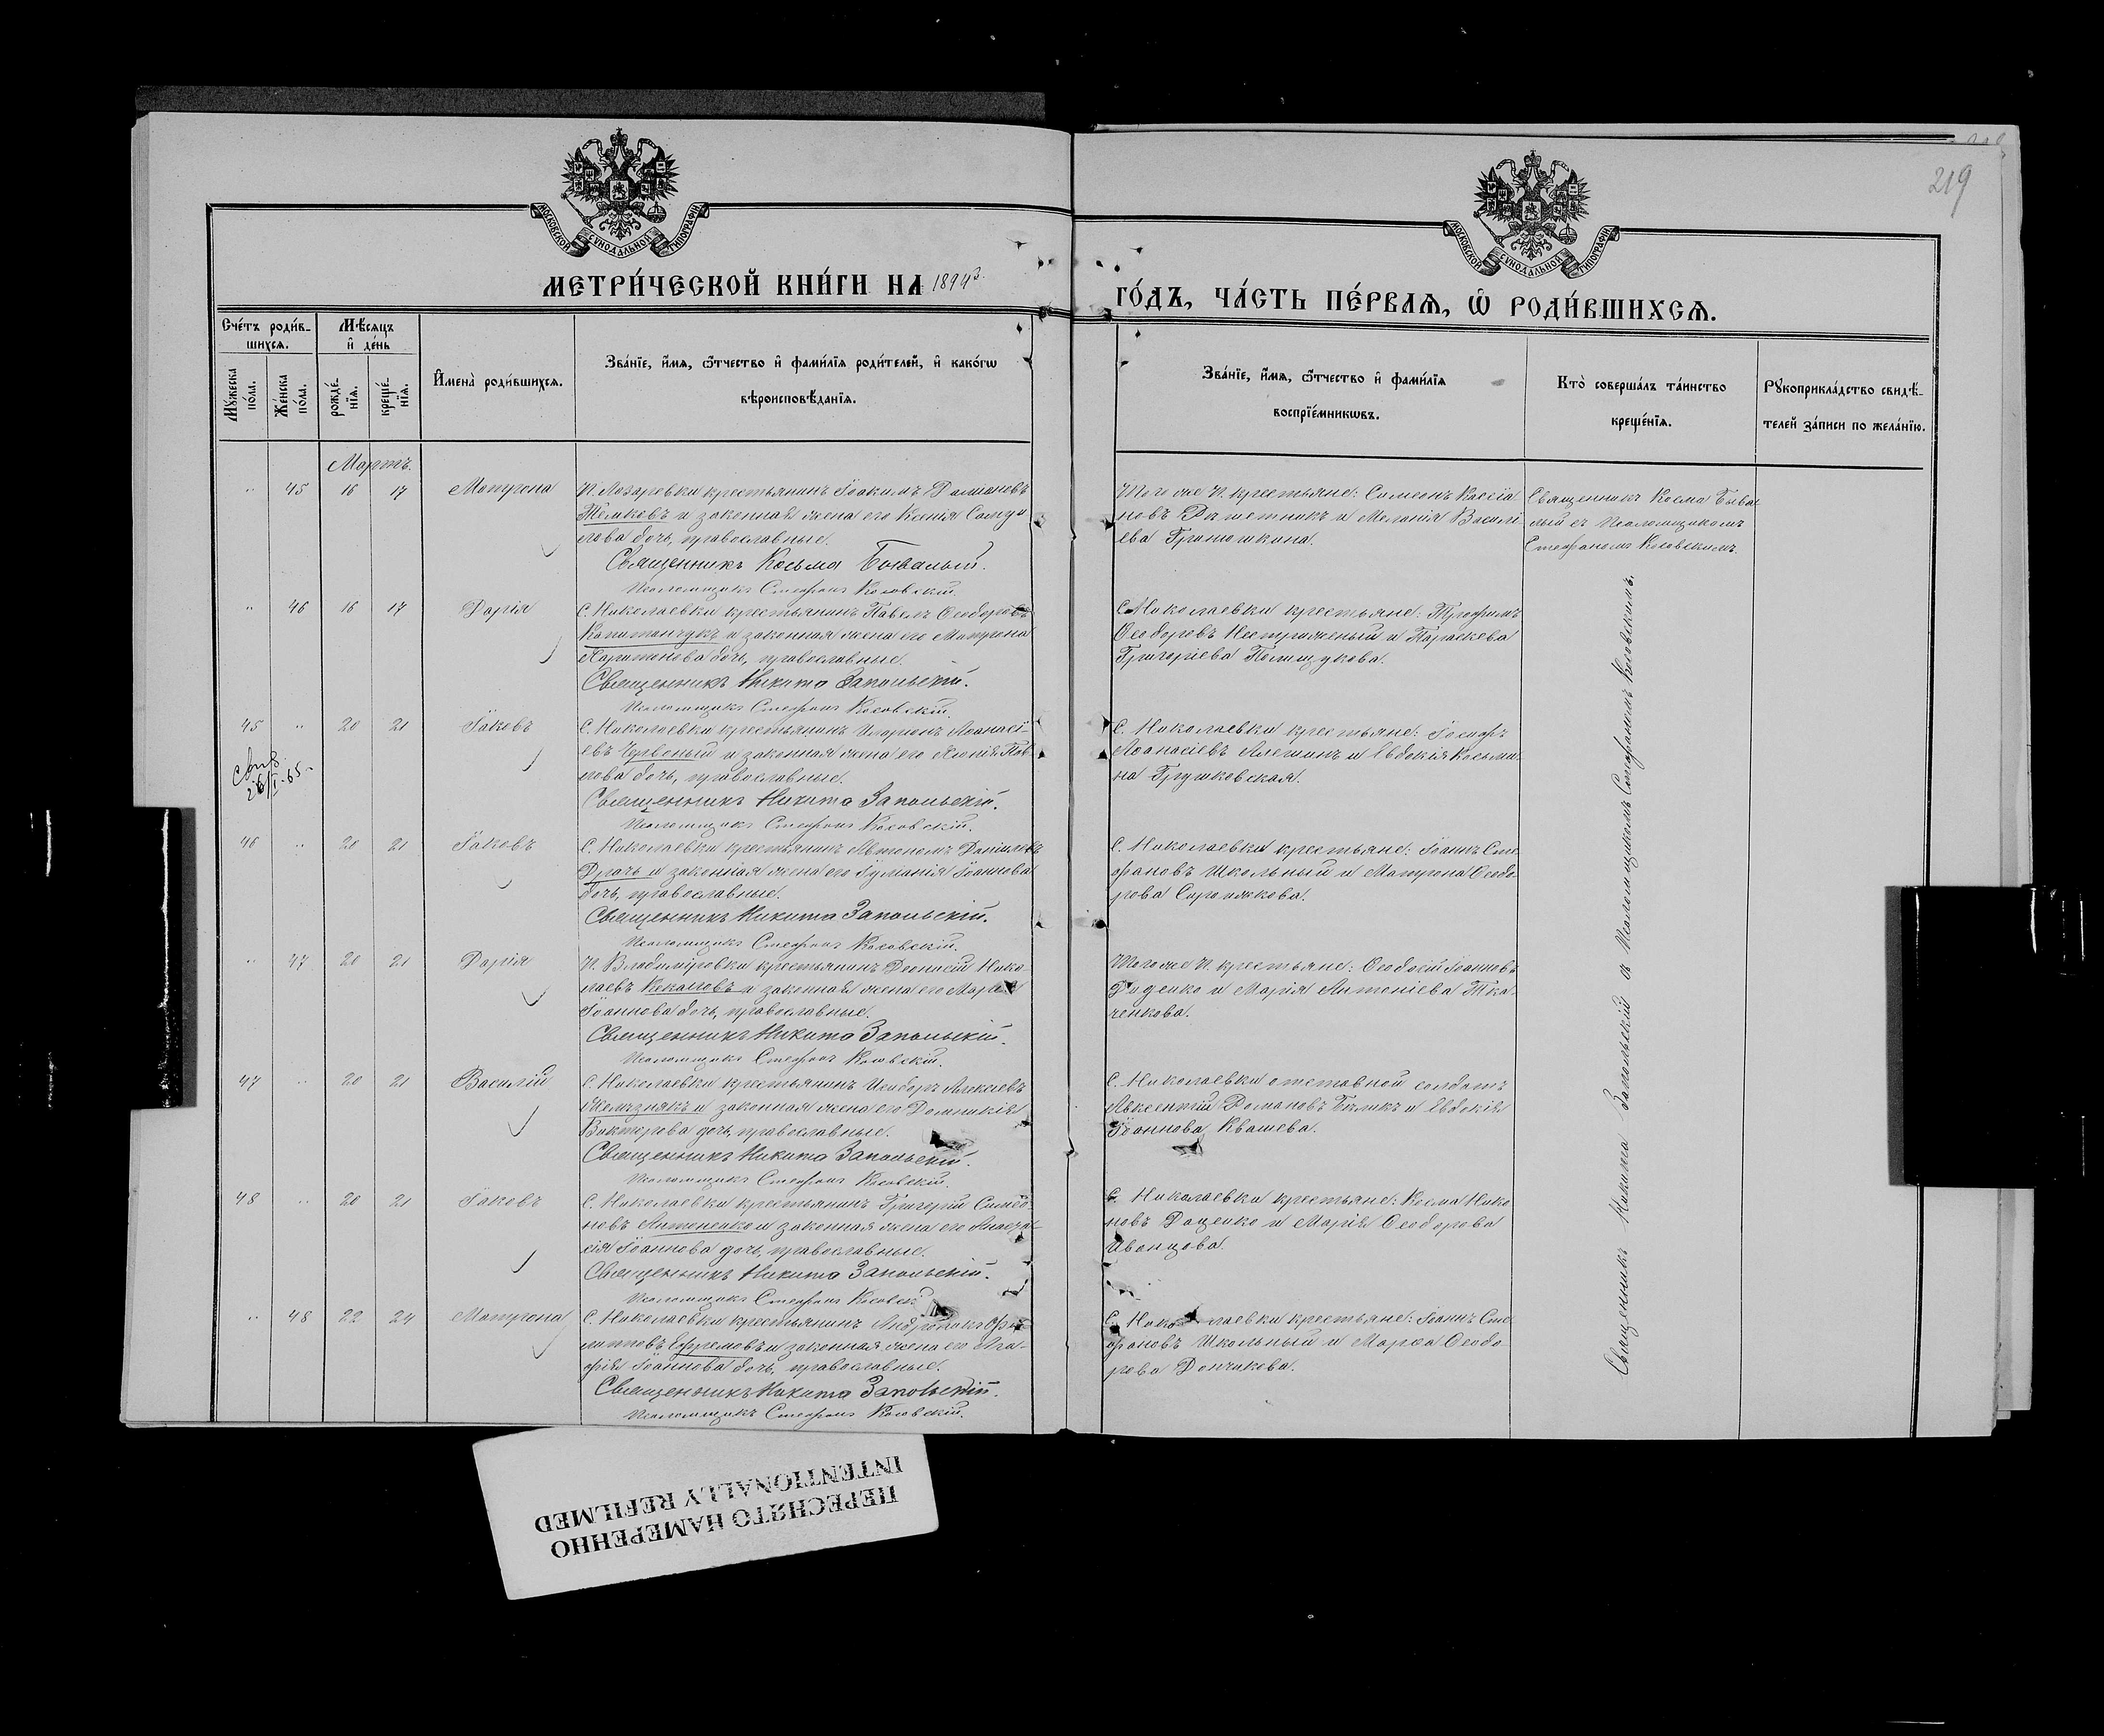 219
МОСКОВСКОЙ СУНОДАЛЬНОЙ ТИПОГРАФІИ
МОСКОВСКОЙ СУНОДАЛЬНОЙ ТИПОГРАФІИ
МЕТРИ́ЧЕСКОЙ КНИ́ГИ НА 1894
ГО́ДЪ, ЧА́СТЬ ПЕ́РВАѦ, Ѡ РОДИ́ВШИХСѦ.
Сче́тъ роди́в-
шихся.
Мѣсяцъ
и де́нь
Мꙋ́жеска по́ла.
Же́нска по́ла.
рожде́-нїя.
креще́-нїя.
Имена̀ роди́вшихся.
Зва́нїе, и́мя, ѻ҆́тчество и фами́лїя роди́телей, и како́гѡ
вѣроисповѣ́данїя.
Зва́нїе, и́мя, ѻ҆́тчество и фами́лїя
воспрїе́мникѡвъ.
Кто̀ соверша́лъ та́инство
креще́нїя.
Рꙋкоприкла́дство свидѣ́-
телей за́писи по жела́нїю.
Мартъ.
" 45 16 17 Матрона
П. Лазаревки крестьянинъ Іоакимъ Даміановъ
Темковъ и законная жена его Ксенія
дочь, православные.
Священникъ Косьма Бывалый.
Псаломщикъ Стефанъ Косовскій.
Того же П. крестьяне: Симеонъ Кассіа
новъ Решетникъ и Меланія Василі-
ева
Священникъ Косма Быва
лый съ Псаломщикомъ
Стефаномъ Косовскимъ.
" 46 16 17 Дарія
С. Николаевки крестьянинъ Павелъ Ѳеодоровъ
Капитанчукъ и законная жена его Матрона
Харитонова дочь, православные.
Священникъ Никита Запольскій.
Псаломщикъ Стефанъ Косовскій.
С. Николаевки крестьяне: Трофимъ
Ѳеодоровъ Нестриженый и Параскева
Григоріева Полищукова.
45 " 20 21 Іаковъ
26/I-65
С. Николаевки крестьянинъ Иларіонъ Аѳанасі-
евъ Червоный и законная жена его Ксенія Пав
лова дочь, православные.
Священникъ Никита Запольскій.
Псаломщикъ Стефанъ Косовскій.
С. Николаевки крестьяне: Іосифъ
Аѳанасіевъ и Евдокія Косьми-
на Грушковская.
46 " 20 21 Іаковъ
С. Николаевки крестьянинъ Автономъ Даниловъ
Драчъ и законная жена его Іуліанія Іоаннова
дочь, православные.
Священникъ Никита Запольскій.
Псаломщикъ Стефанъ Косовскій.
С. Николаевки крестьяне: Іоаннъ Сте
фановъ Школьный и Матрона Ѳеодо-
рова Сиропяткова.
" 47 20 21 Дарія
П. Владиміровки крестьянинъ Діонисій Нико-
лаевъ и законная жена его Марія
Іоаннова дочь, православные.
Священникъ Никита Запольскій.
Псаломщикъ Стефанъ Косовскій.
Того же П. крестьяне: Ѳеодосій Іоанновъ
и Марія Антоніева Тка-
ченкова.
47 " 20 21 Василій
С. Николаевки крестьянинъ Исидоръ Алексіевъ
Желѣзнякъ и законная жена его Домникія
Викторова дочь, православные.
Священникъ Никита Запольскій.
Псаломщикъ Стефанъ Косовскій.
С. Николаевки отставной солдатъ
Авксентій Романовъ Бѣликъ и Евдокія
Іоаннова Квашева.
48 " 20 21 Іаковъ
С. Николаевки крестьянинъ Григорій Симео-
новъ Антоненко и законная жена его Анаста-
сія Іоаннова дочь, православные.
Священникъ Никита Запольскій.
Псаломщикъ Стефанъ
С. Николаевки крестьяне: Косма Нико
новъ Доценко и Марія Ѳеодорова
Иванцова.
" 48 22 24 Матрона
С. Николаевки крестьянинъ Андроникъ Фи-
липповъ Ефремовъ и законная жена его Ага-
фія Іоаннова дочь, православные.
Священникъ Никита Запольскій.
Псаломщикъ Стефанъ Косовскій.
С. Николаевки крестьяне: Іоаннъ Сте
фановъ Школьный и Марѳа Ѳеодо-
рова Дончикова.
Священникъ Никита Запольскій съ Псаломщикомъ Стефаномъ Косовскимъ.
ПЕРЕСНЯТО НАМЕРЕННО
INTENTIONALLY REFILMED